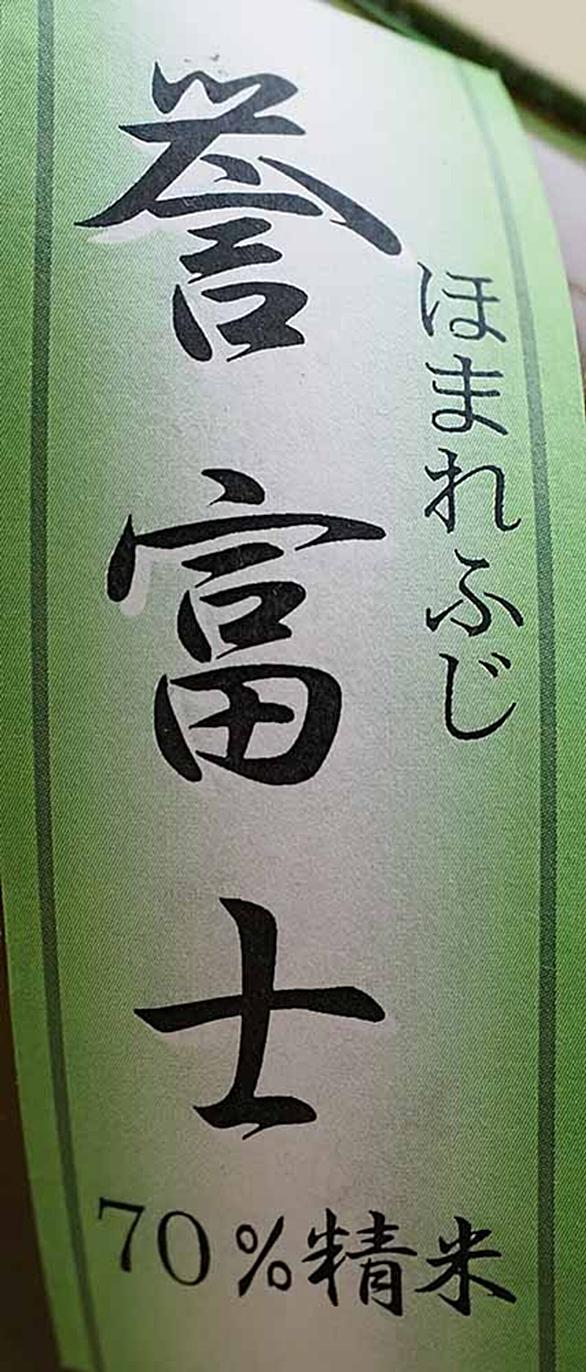 誉富士
ほまれふじ
70%精米